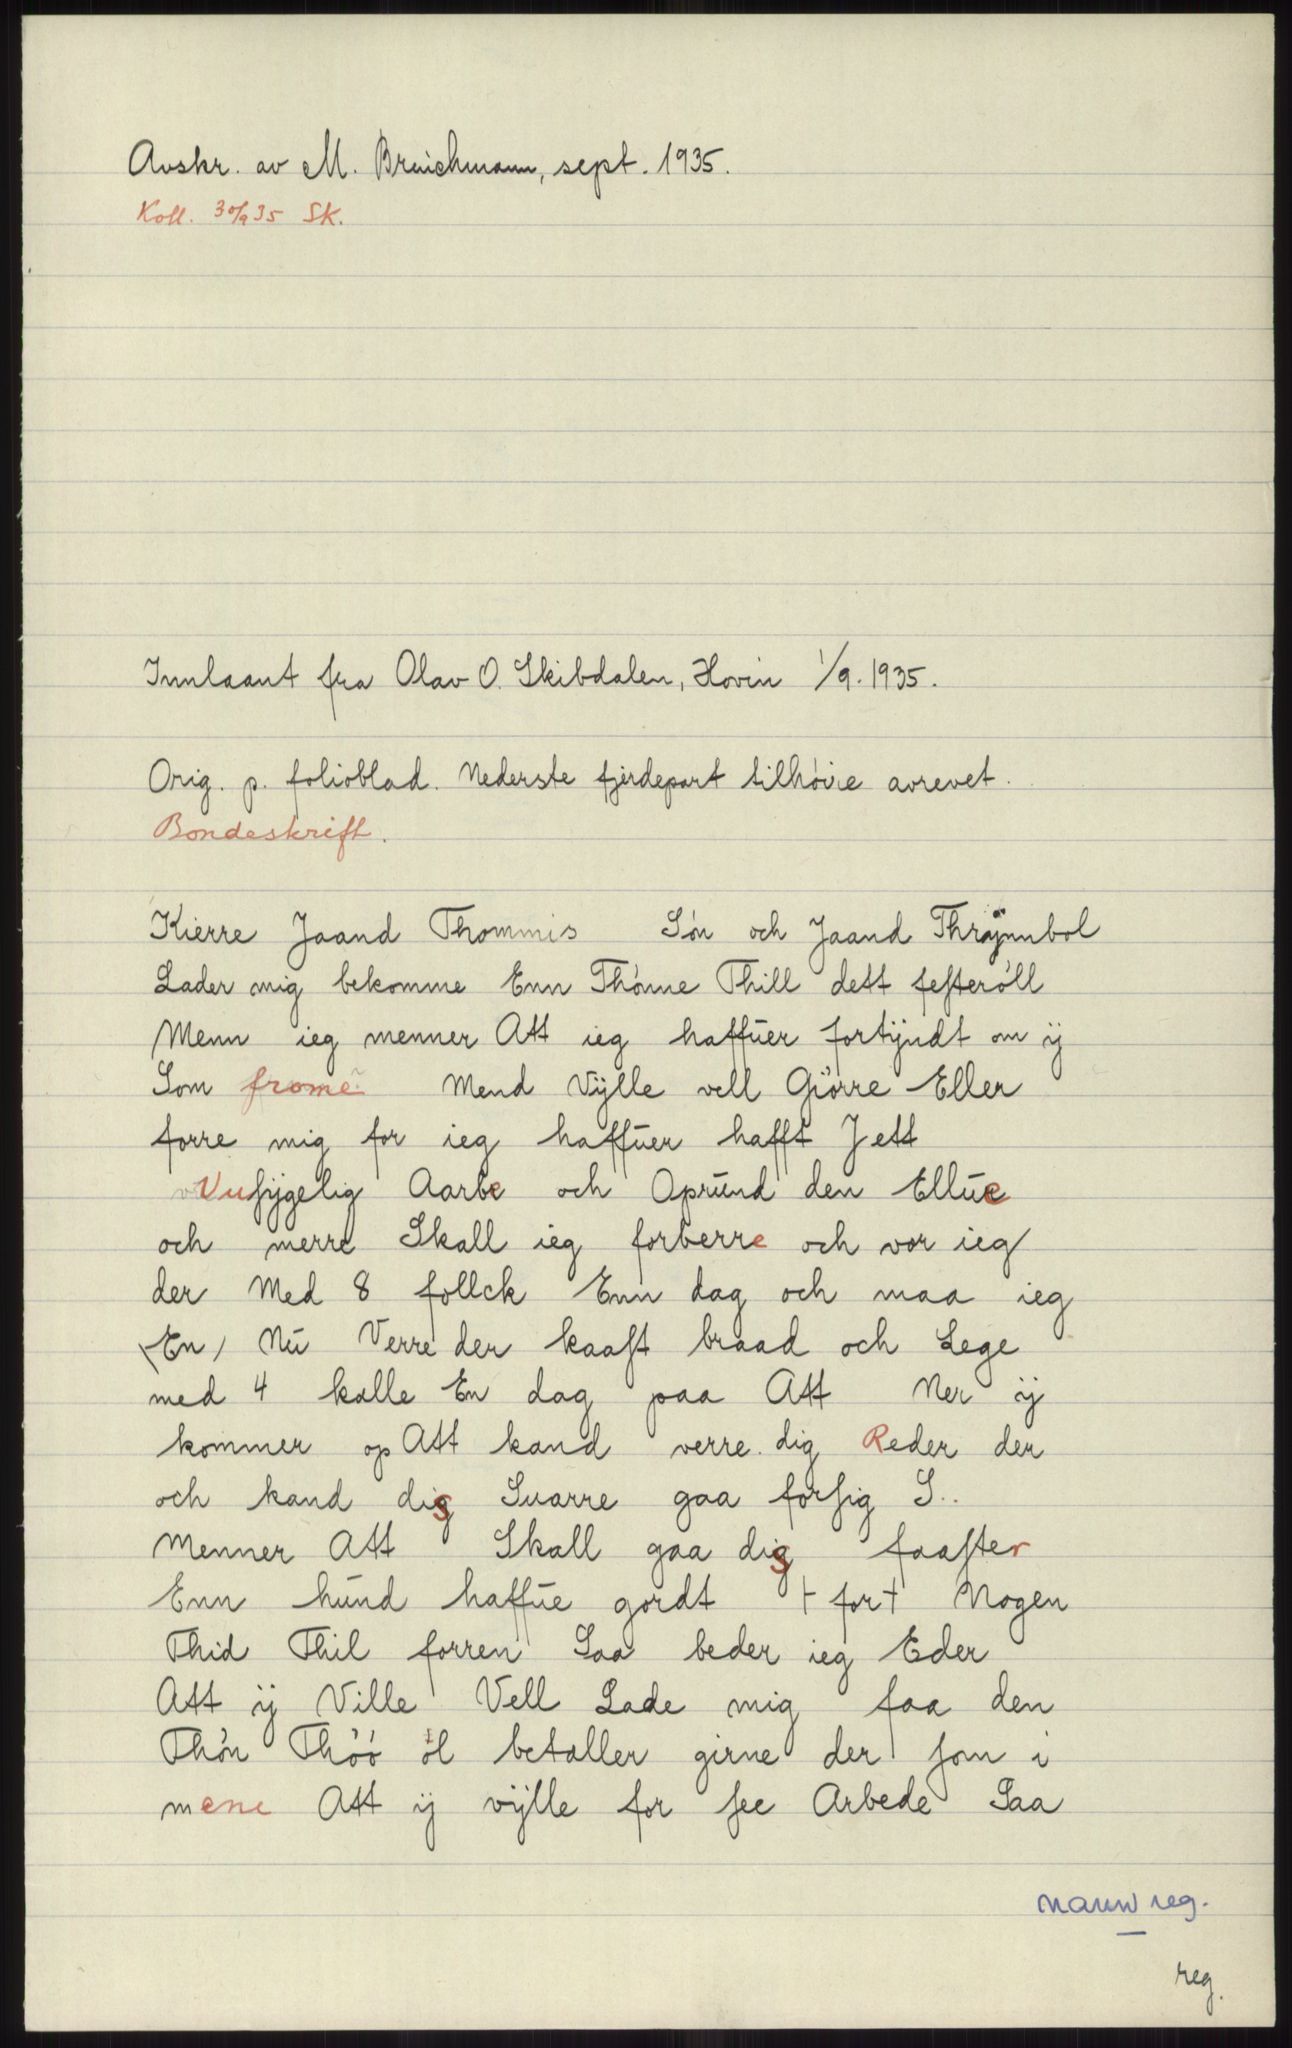 Avskr. av M. Bruichmann, sept. 1935.
Koll. 30/9 35 SK.
Innlaant fra Olav O. Skibdalen, Hovin 1/9. 1935.
Orig. p. folioblad. Nederste fjerdepart tilhøire avrevet.
Bondeskrift.
Kierre Jaand Thommis Søn och Jaand
Lader mig bekomme Enn Thønne Thill dett festerøll
Menn ieg menner Att ieg haffuer fortÿndt om ÿ
Som frome Mend Vÿlle vell Giørre Eller
forre mig for ieg haffuer hafft J ett
Vusÿgelig Aarbe och Oprund den Ellue
och merre Skall ieg forberre och vor ieg
der Med 8 follck Enn dag och maa ieg
(En) Nu Verre der kaast braad och Lege
med 4 kalle En dag paa Att Ner ÿ
kommer op Att kand verre dig Reder der
och kand dis Suarre gaa forsig S..
Menner Att Skall gaa dis faaster
Enn hund haffue gordt + for + Nogen
Thid Thil forren Saa beder ieg Eder
Att ÿ Ville Vell Lade mig faa den
Thøn Thøø øl betaller girne der som i
mene Att ÿ vÿlle for see Arbede Saa
navn reg.
reg.